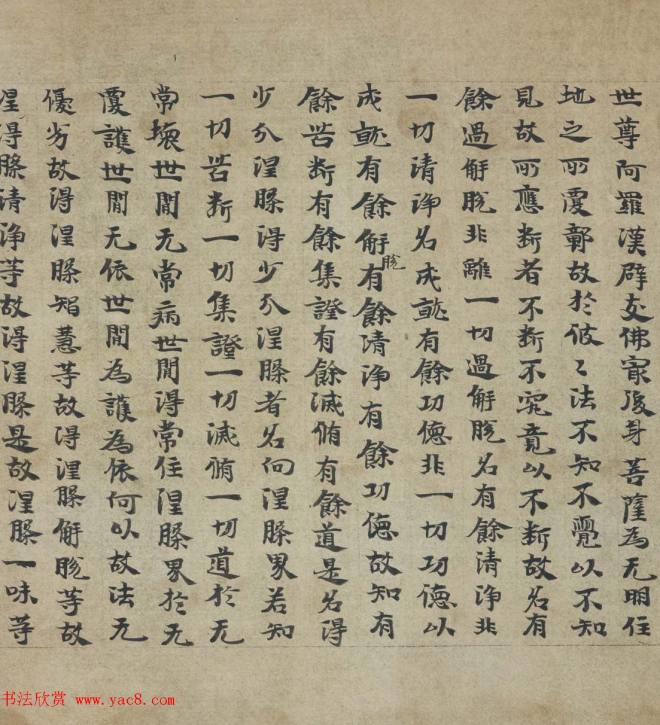 世尊阿羅漢辟支佛最後身菩薩為无明住
地之所覆鄣故於彼〻法不知不覺以不知
見故所應斷者不斷不究竟以不斷故名有
餘過解脫非離一切過解脫名有餘清淨非
一切清淨名成就有餘功德非一切功德以
成就有餘解脫有餘清淨有餘功德故知有
餘苦斷有餘集證有餘滅脩有餘道是名得
少分涅槃得少分涅槃者名向涅槃界若知
一切苦斷一切集證一切滅脩一切道於无
常壞世間无常病世間得常住涅槃界於无
覆護世間无依世間為護為依何以故法无
優劣故得涅槃智慧等故得涅槃解脫等故
涅得槃清淨等故得涅槃是故涅槃一味等
书法欣赏 www.yac8.com